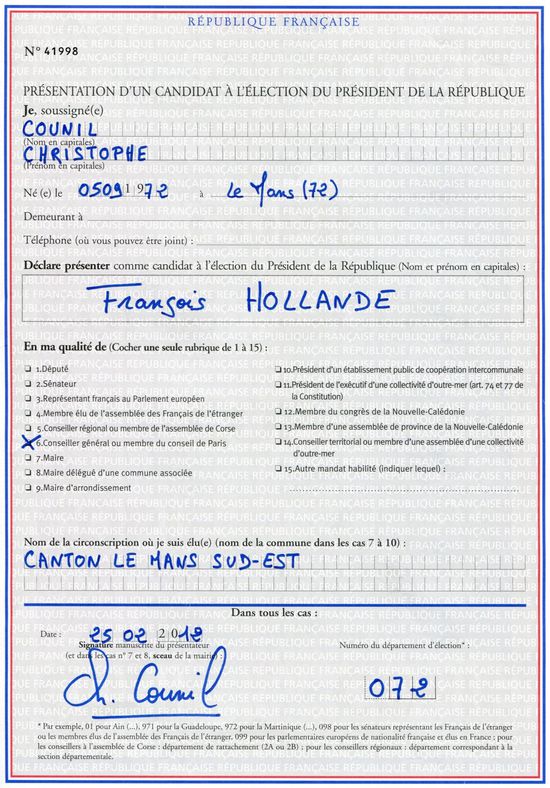 RÉPUBLIQUE FRANÇAISE
N° 41998
PRÉSENTATION D'UN CANDIDAT À L'ÉLECTION DU PRÉSIDENT DE LA RÉPUBLIQUE
Je, soussigné(e)
COUNIL
(Nom en capitales)
CHRISTOPHE
(Prénom en capitales)
Né (e) le 05 09 1972 à Le Mans (72)
Demeurant à
Téléphone (où vous pouvez être joint) :
Déclare présenter comme candidat à l'élection du Président de la République (Nom et prénom en capitales) :
François HOLLANDE
En ma qualité de (Cocher une seule rubrique de 1 à 15) :
1.Député
2.Sénateur
3.Représentant français au Parlement européen
4.Membre élu de l'assemblée des Français de l'étranger
5.Conseiller régional ou membre de l'assemblée de Corse
6.Conseiller général ou membre du conseil de Paris
7.Maire
8.Maire délégué d'une commune associée
9.Maire d'arrondissement
10.Président d'un établissement public de coopération intercommunale
11.Président de l'exécutif d'une collectivité d'outre-mer (art. 74 et 77 de
la Constitution)
12.Membre du congrès de la Nouvelle-Calédonie
13.Membre d'une assemblée de province de la Nouvelle-Calédonie
14.Conseiller territorial ou membre d'une assemblée d'une collectivité
d'outre-mer
15.Autre mandat habilité (indiquer lequel) :
Nom de la circonscription où je suis élu(e) (nom de la commune dans les cas 7 à 10) :
CANTON LE MANS SUD-EST
Dans tous les cas :
Date : 25 02 2012
Signature manuscrite du présentateur
(et dans les cas n° 7 et 8, sceau de la mairie) :
Ch. Counil
Numéro du département d'élection* :
072
* Par exemple, 01 pour Ain (...), 971 pour la Guadeloupe, 972 pour la Martinique (...), 098 pour les sénateurs représentant les Français de l'étranger
ou les membres élus de l'assemblée des Français de l'étranger. 099 pour les parlementaires européens de nationalité française et élus en France ; pour
les conseillers à l'assemblée de Corse : département de rattachement (2A ou 2B) ; pour les conseillers régionaux : département correspondant à la
section départementale.